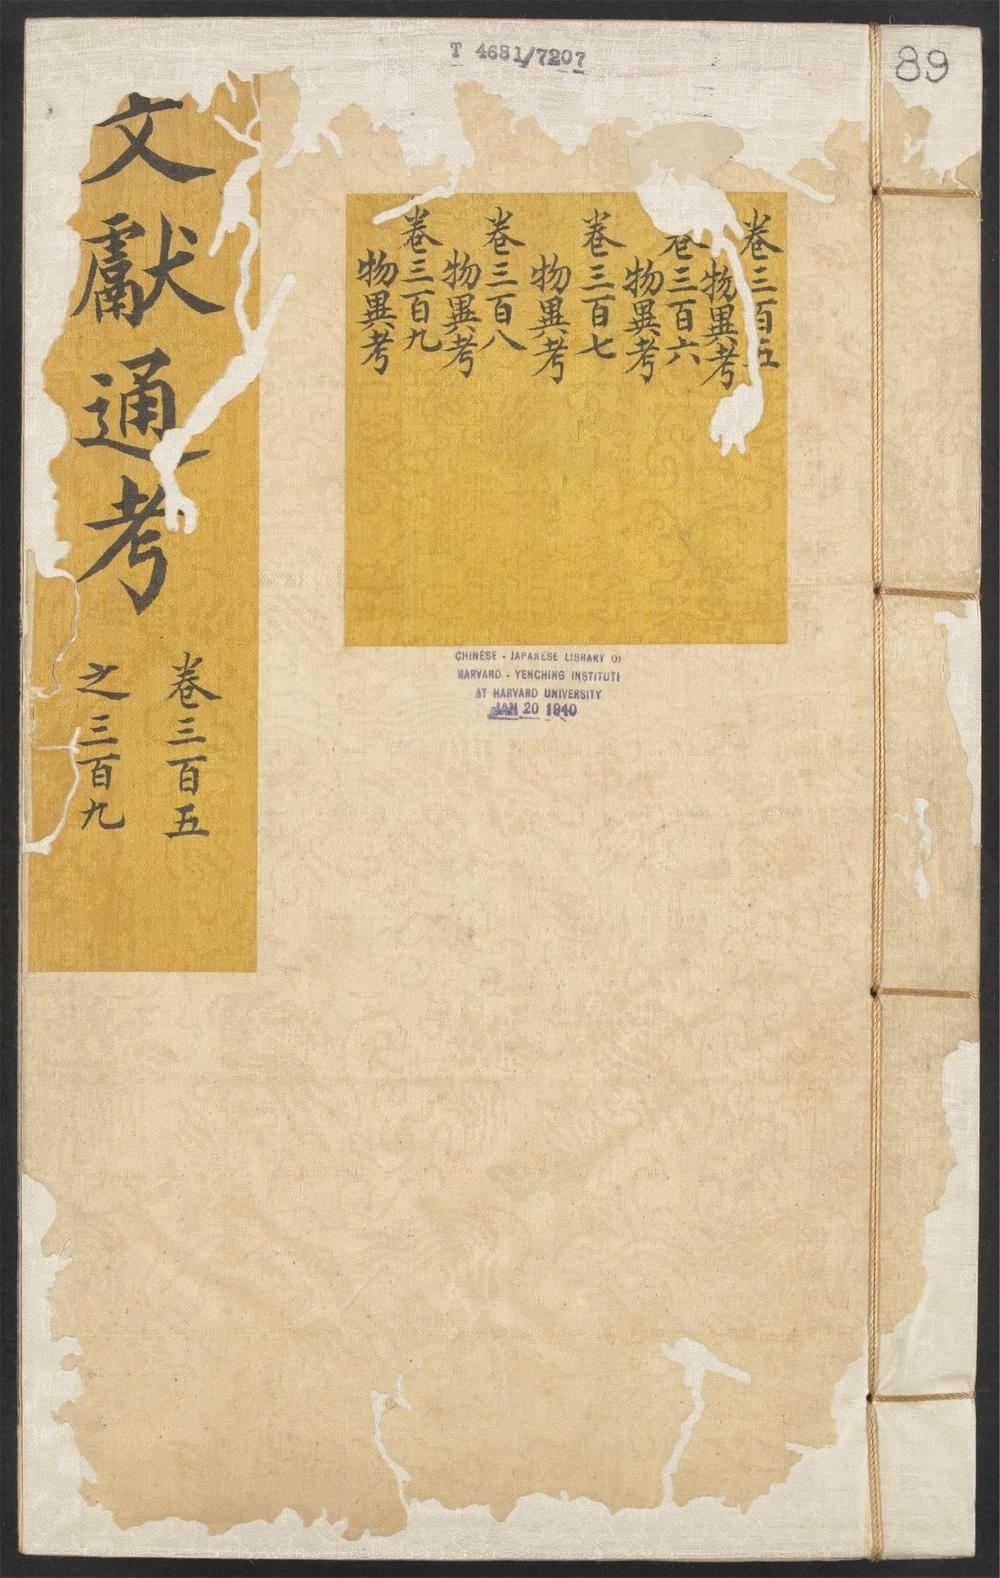 T 4681/7207
89
文獻通考
卷三百五
之三百九
卷三百五
物異考
卷三百六
物異考
卷三百七
物異考
卷三百八
物異考
卷三百九
物異考
CHINESE - JAPANESE LIBRARY OF
HARVARD - YENCHING INSTITUTE
AT HARVARD UNIVERSITY
JAN 20 1940